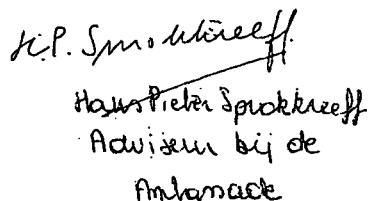 H.P. Sprokkreeff.
Hans Pieter Sprokkreeff
Adviseur bij de
Ambassade